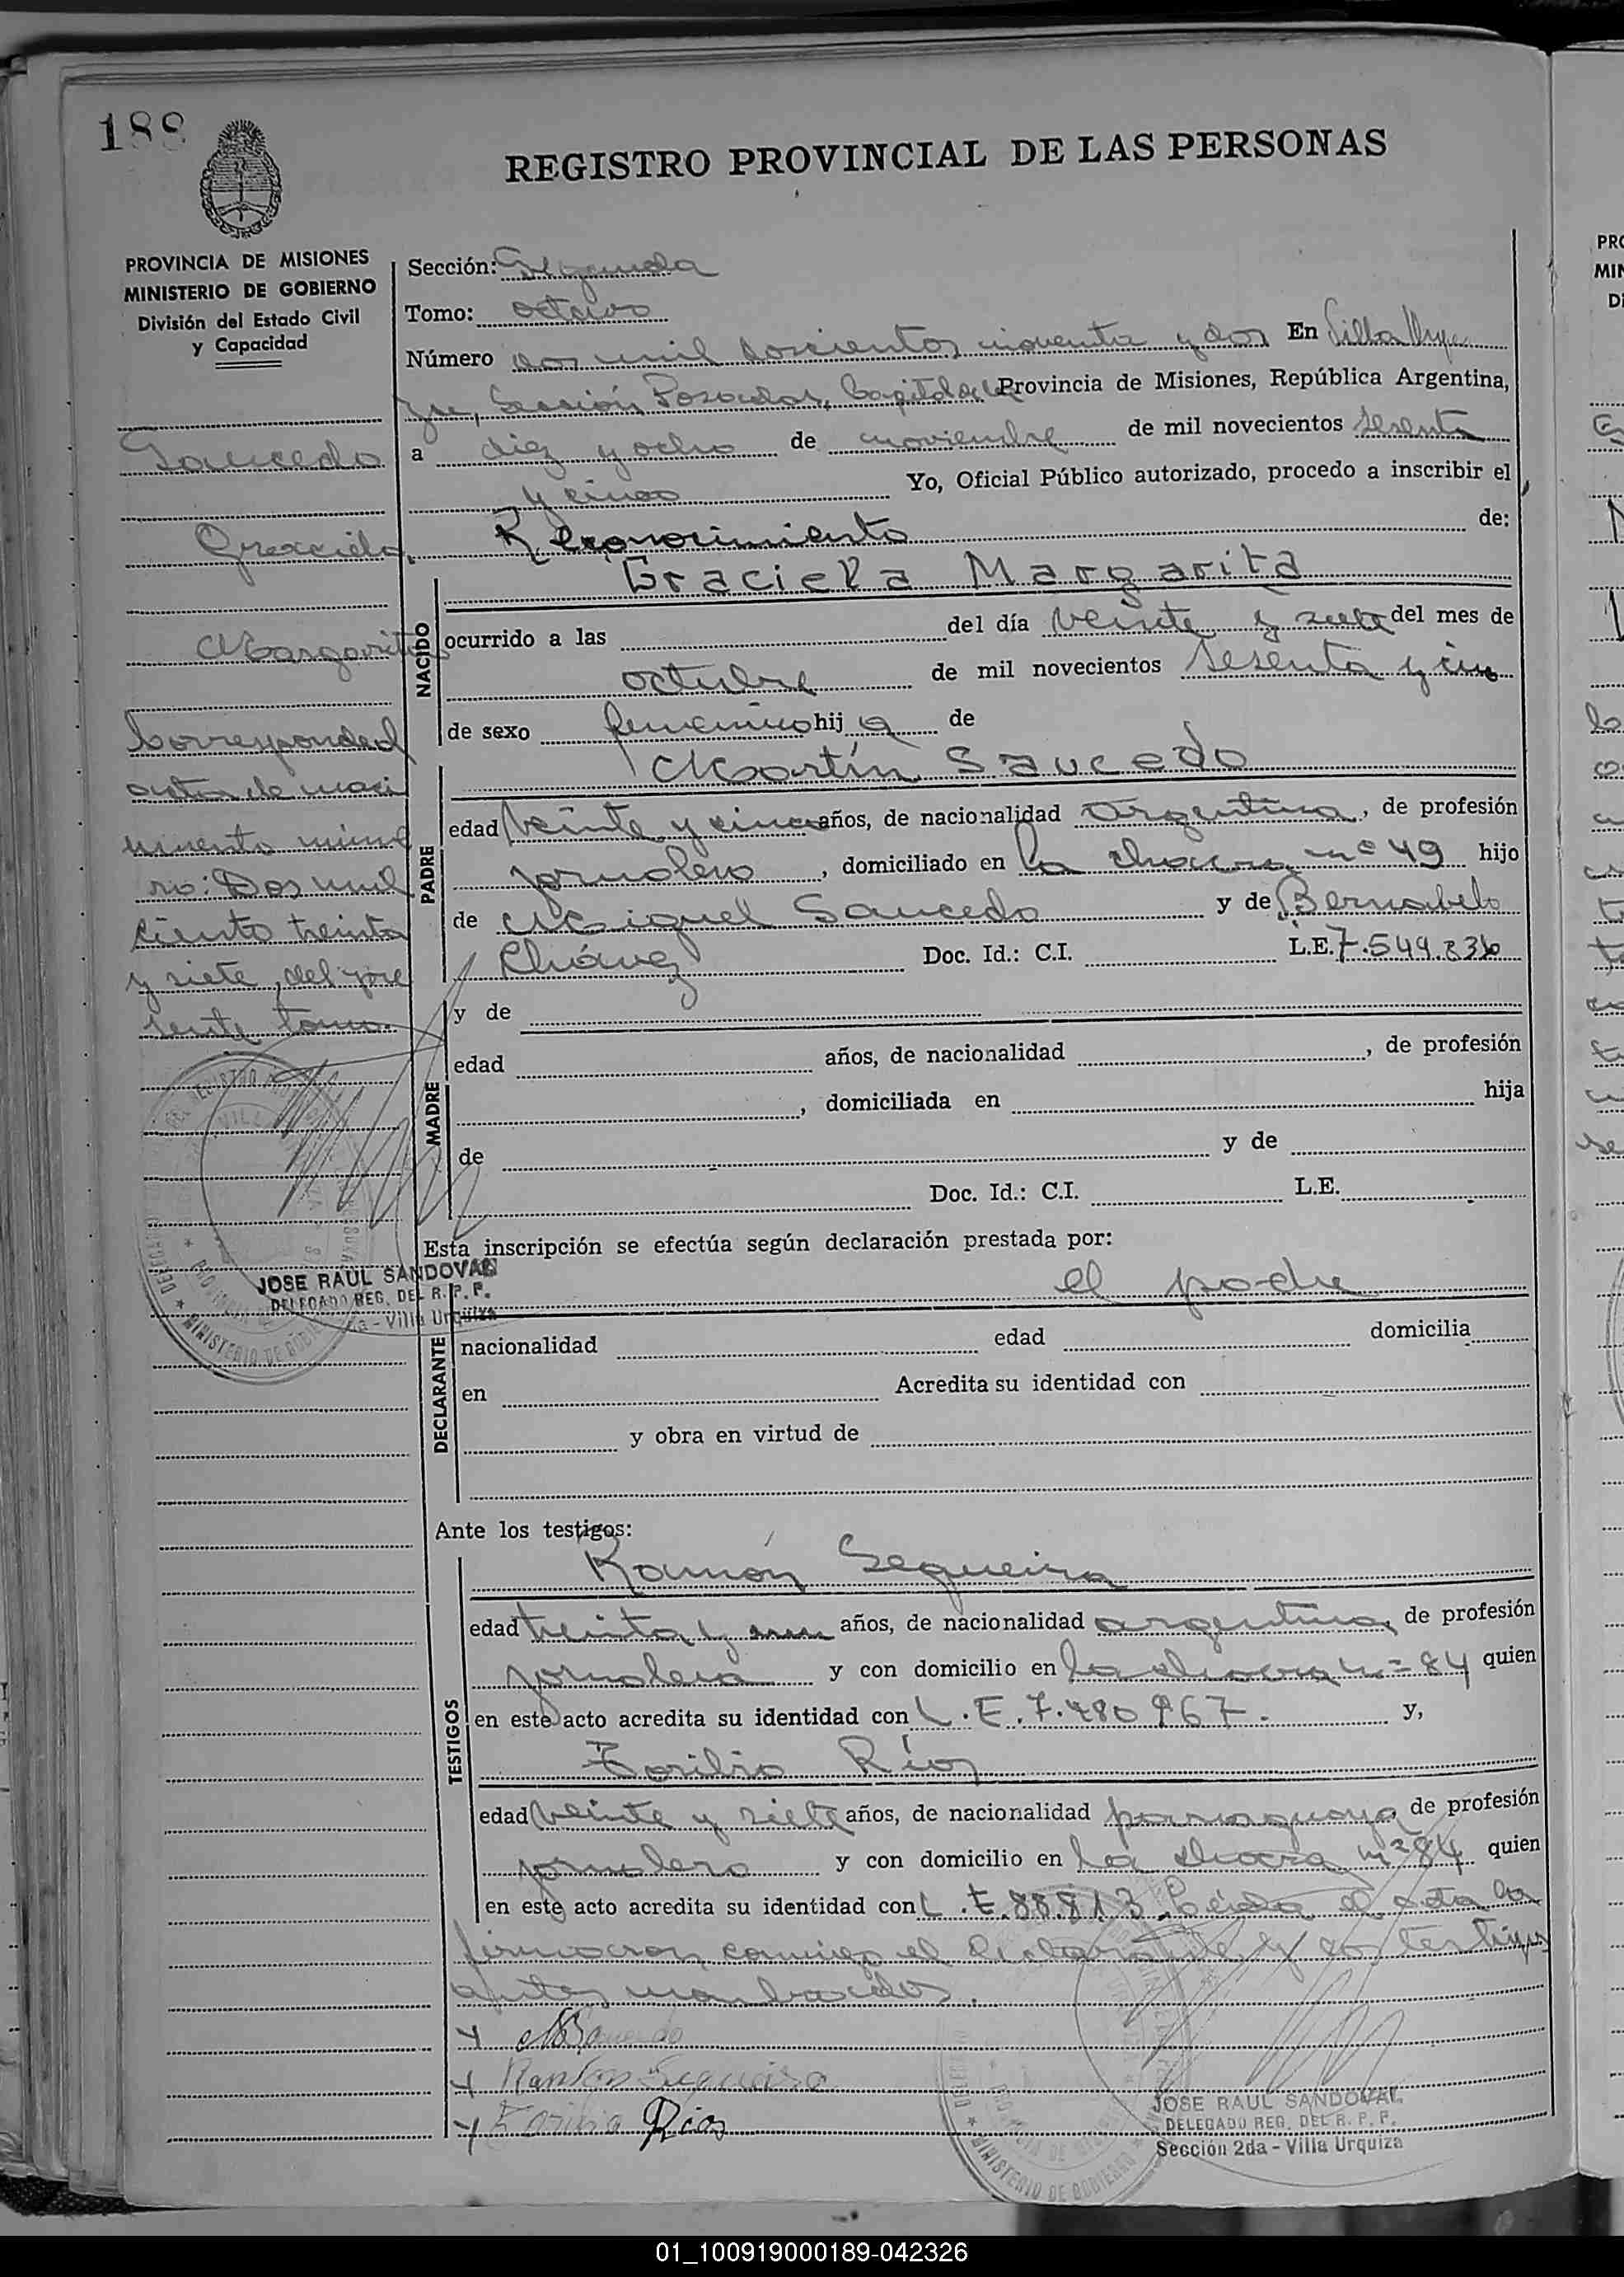 188
REGISTRO PROVINCIAL DE LAS PERSONAS
PROVINCIA DE MISIONES
MINISTERIO DE GOBIERNO
División del Estado Civil
y Capacidad
Saucedo
Graciela
Margarita
Corresponde al
acta de naci
miento núme
ro: Dos mil
ciento treinta
y siete, del pre
sente tomo.
JOSE RAUL SANDOVAL
DELEGADO REG. DEL R. P. P.
Villa Urquiza
Sección: Segunda
Tomo: octavo
Número dos mil doscientos noventa y dos En Villa Urqui
za, Sección Posadas, Capital de la Provincia de Misiones, República Argentina,
a diez y ocho de noviembre de mil novecientos sesenta
y cinco Yo, Oficial Público autorizado, procedo a inscribir el
Reconocimiento de:
NACIDO
Graciela Margarita
ocurrido a las del día veinte y siete del mes de
octubre de mil novecientos sesenta y cinco
de sexo femenino hija de
PADRE
Martín Saucedo
edad veinte y cinco años, de nacionalidad argentina, de profesión
jornalero, domiciliado en la chacra nº 49 hijo
de Miguel Saucedo y de Bernabela
Chávez Doc. Id.: C.I. L.E. 7.549.836
MADRE
y de
edad años, de nacionalidad , de profesión
, domiciliada en hija
de y de
Doc. Id.: C.I. L.E.
Esta inscripción se efectúa según declaración prestada por:
el padre
DECLARANTE
nacionalidad edad domicilia
en Acredita su identidad con
y obra en virtud de
Ante los testigos:
TESTIGOS
Ramón Sequeira
edad treinta y un años, de nacionalidad argentina, de profesión
jornalero y con domicilio en la chacra nº 84 quien
en este acto acredita su identidad con L.E. 7.480.967. y,
Zoilio Ríos
edad veinte y siete años, de nacionalidad paraguaya, de profesión
jornalero y con domicilio en la chacra nº 84 quien
en este acto acredita su identidad con L.E. 88.813. Leída el acta la
firmaron conmigo el declarante y los testigos
antes nombrados.
M Saucedo
Ramón Sequeira
Ríos
JOSE RAUL SANDOVAL
DELEGADO REG. DEL R. P. P.
Sección 2da - Villa Urquiza
MINISTERIO DE GOBIERNO
01_100919000189-042326